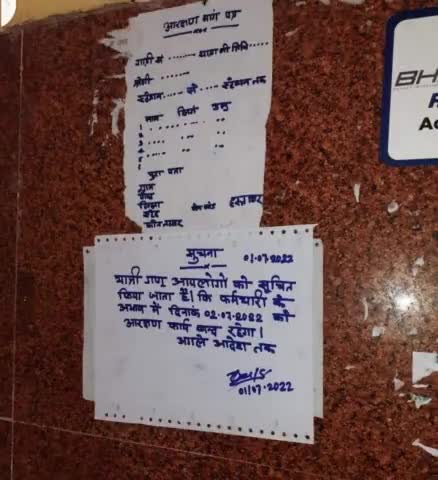 आरक्षण मांग पत्र
गाड़ी सं ........ यात्रा की तिथि .....
श्रेणी .......
स्टेशन ..... से ..... स्टेशन तक
नाम लिंग उम्र
1
2
3
4
5
पुरा पता
ग्राम
पोस्ट
जिला पिन कोड हस्ताक्षर
सूचना 01.07.2022
यात्री गण आपलोगो को सूचित
किया जाता है। कि कर्मचारी के
अभाव में दिनांक 02.07.2022 को
आरक्षण कार्य बन्द रहेगा।
अगले आदेश तक
01/07/2022
BH
A